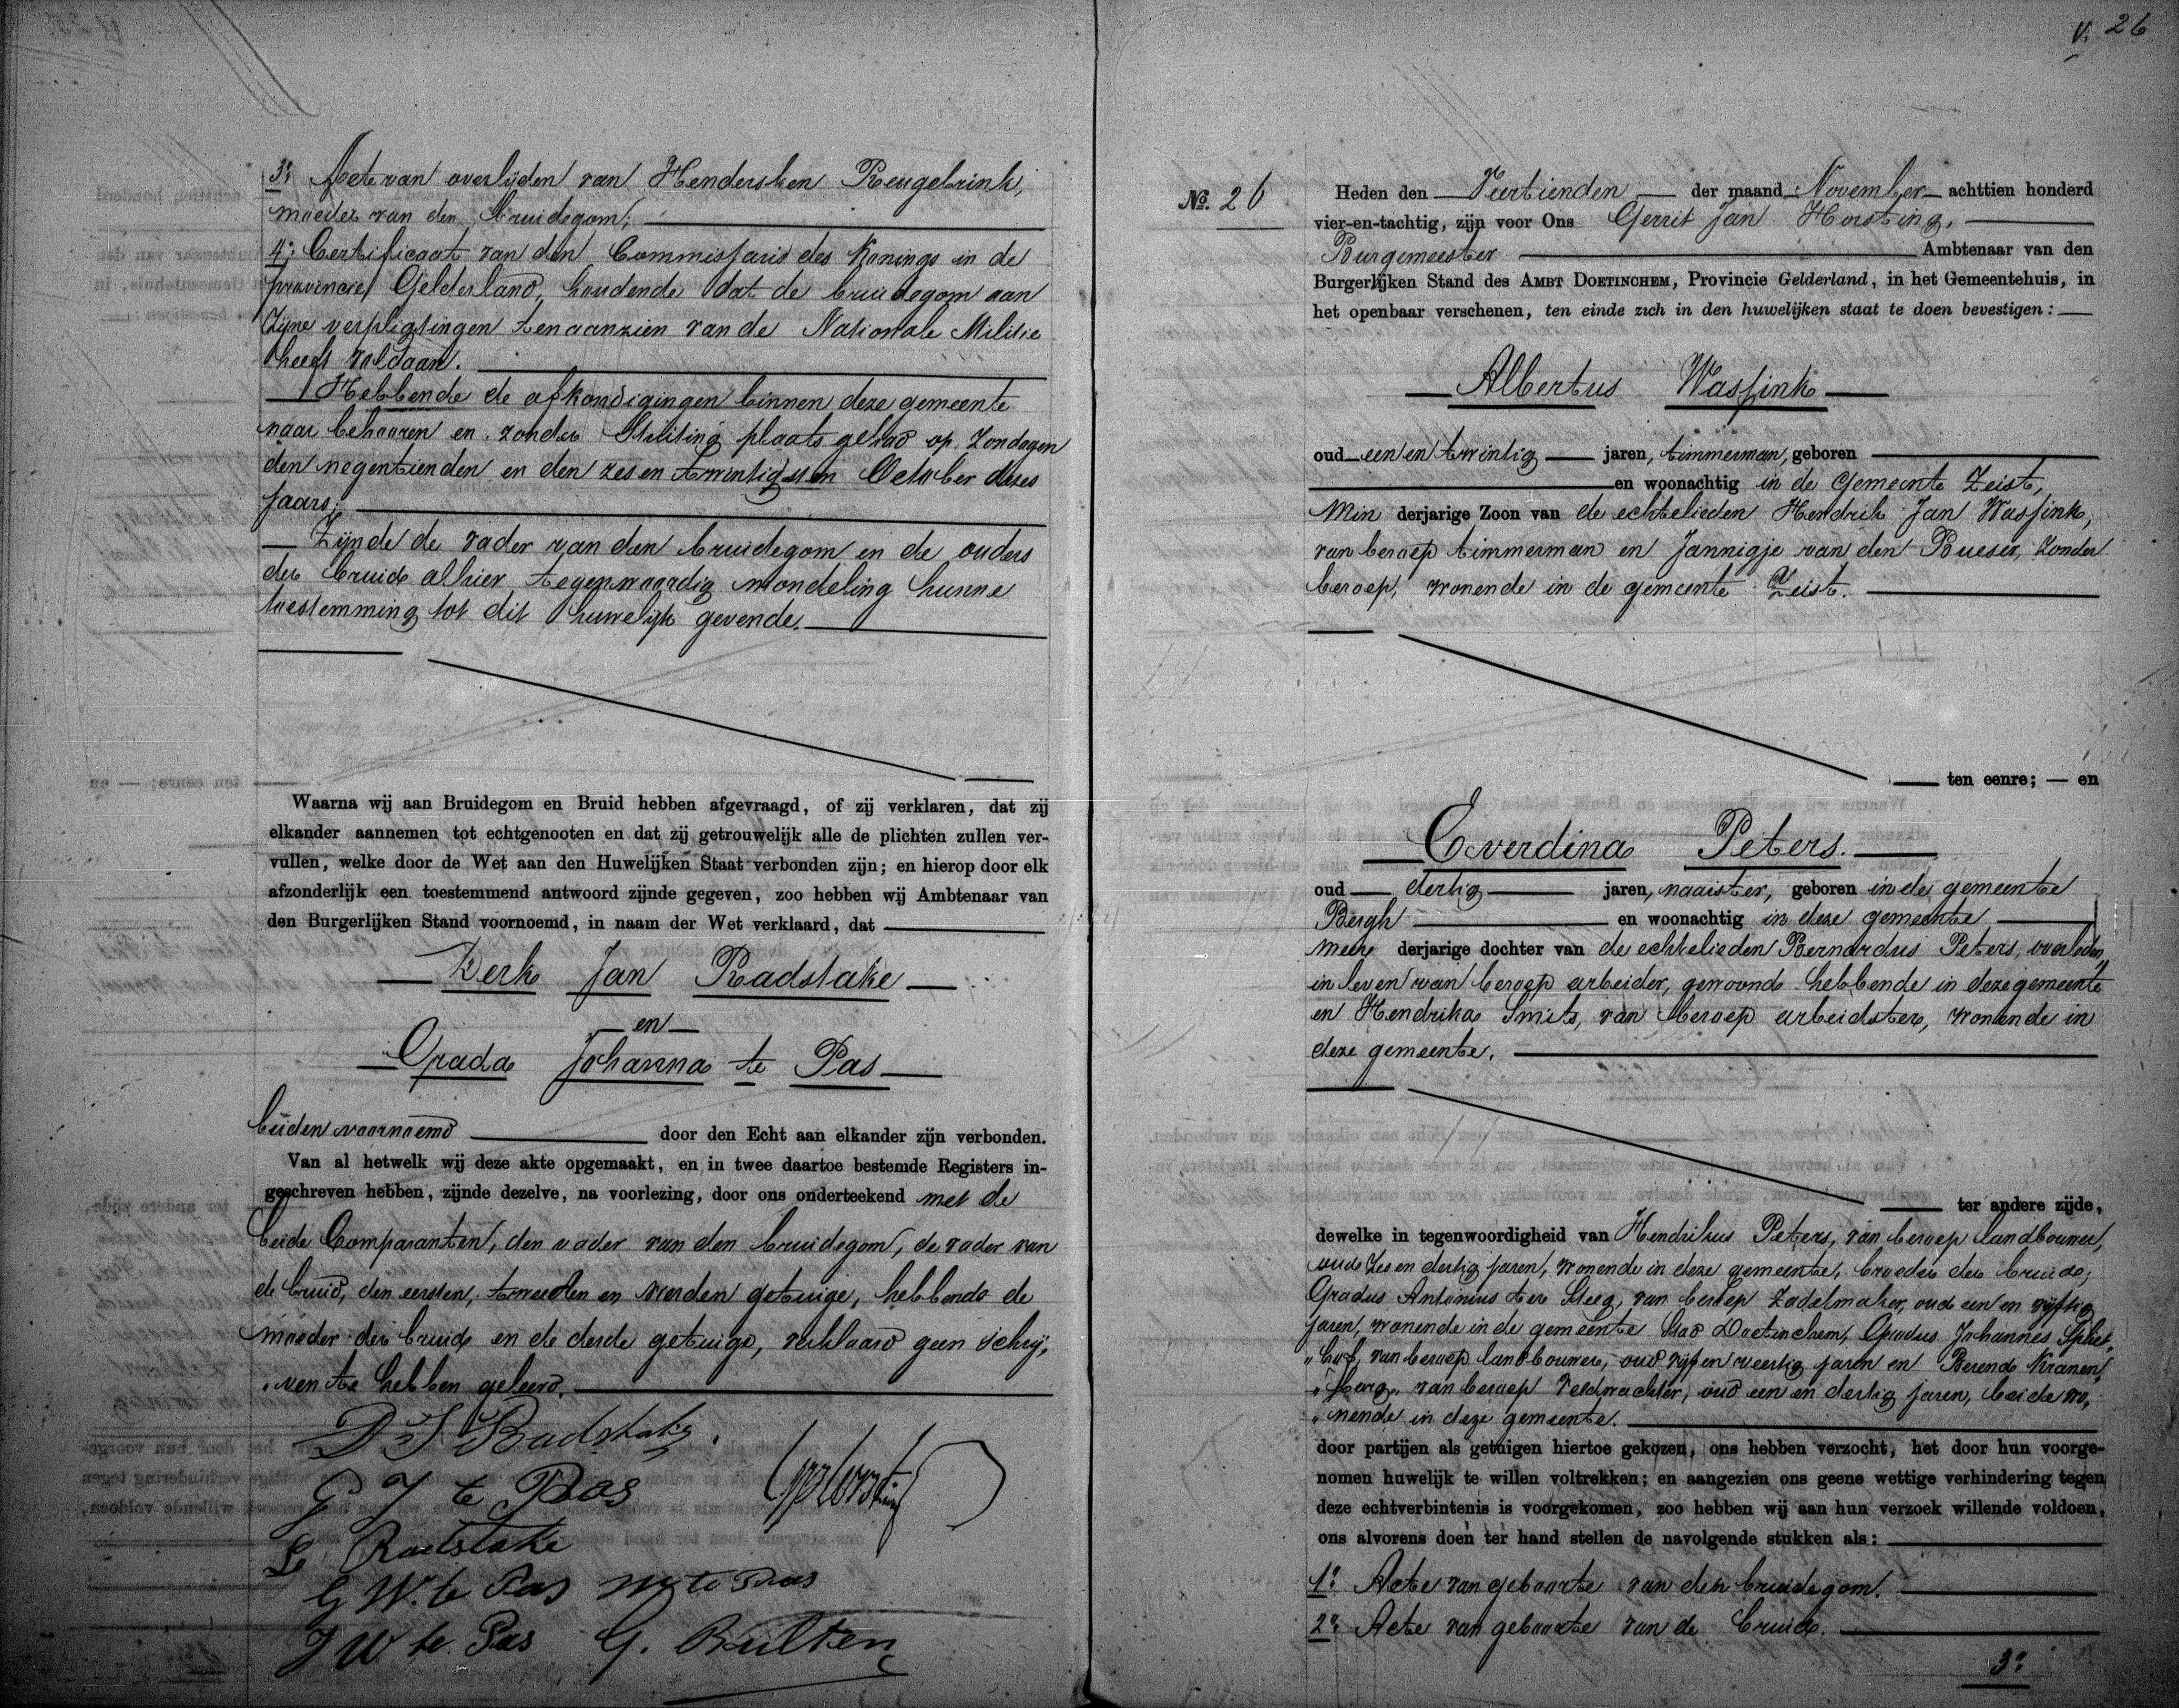 3º Acte van overlijden van Hendersken Reugebrink,
moeder van den Bruidegom;
4º Certificaat van den Commissaris des Konings in de
provincie Gelderland, houdende dat de bruidegom aan
zijne verpligtingen ten aanzien van de Nationale Militie
heeft voldaan.
Hebbende de afkondigingen binnen deze gemeente
naar behooren en zonder Stuiting plaats gehad op Zondagen
den negentienden en den zes en twintigsten October dezes
jaars;
Zijnde de vader van den bruidegom en de ouders
der bruid alhier tegenwoordig mondeling hunne
toestemming tot dit huwelijk gevende.
Waarna wij aan Bruidegom en Bruid hebben afgevraagd, of zij verklaren, dat zij
elkander aannemen tot echtgenooten en dat zij getrouwelijk alle de plichten zullen ver-
vullen, welke door de Wet aan den Huwelijken Staat verbonden zijn; en hierop door elk
afzonderlijk een toestemmend antwoord zijnde gegeven, zoo hebben wij Ambtenaar van
den Burgerlijken Stand voornoemd, in naam der Wet verklaard, dat
Derk Jan Radstake
en
Grada Johanna te Pas
beiden voornoemd door den Echt aan elkander zijn verbonden.
Van al hetwelk wij deze akte opgemaakt, en in twee daartoe bestemde Registers in-
geschreven hebben, zijnde dezelve, na voorlezing, door ons onderteekend met de
beide Comparanten, den vader van den bruidegom, de vader van
de bruid, den eersten, tweeden en vierden getuige, hebbende de
moeder der bruid en de derde getuige, verklaard geen schrij„
„ven te hebben geleerd.
D J Radstake
G J te Pas
GJHorsting
Radstake
G W. te Pas
J W te Pas G. Bulten
V. 26
No. 26
Heden den Veertienden der maand November achttien honderd
vier-en-tachtig, zijn voor Ons Gerrit Jan Horsting,
Burgemeester Ambtenaar van den
Burgerlijken Stand des AMBT DOETINCHEM, Provincie Gelderland, in het Gemeentehuis, in
het openbaar verschenen, ten einde zich in den huwelijken staat te doen bevestigen:
Albertus Wassink
oud een en twintig jaren, timmerman, geboren
en woonachtig in de gemeente Zeist,
Min derjarige Zoon van de echtelieden Hendrik Jan Wassink,
van beroep timmerman en Jannigje van den Bueser, zonder
beroep, wonende in de gemeente Zeist.
ten eenre; — en
Everdina Peters.
oud dertig jaren, naaister, geboren in de gemeente
Bergh en woonachtig in deze gemeente
meer derjarige dochter van de echtelieden Bernardus Peters, overleden,
in leven van beroep arbeider, gewoond hebbende in deze gemeente
en Hendrika Smits, van beroep arbeidster, wonende in
deze gemeente.
ter andere zijde,
dewelke in tegenwoordigheid van Hendrikus Peters, van beroep landbouwer,
oud zes en dertig jaren, wonende in deze gemeente, broeder der bruid;
Gradus Antonius ter Steeg, van beroep Zadelmaker, oud een en vijftig
jaren, wonende in de gemeente Stad Doetinchem, Gradus Johannes
„hof, van beroep landbouwer, oud vijf en veertig jaren en Berend Kranen„
„burg, van beroep veldwachter, oud een en dertig jaren, beide wo„
„nende in deze gemeente.
door partijen als getuigen hiertoe gekozen, ons hebben verzocht, het door hun voorge-
nomen huwelijk te willen voltrekken; en aangezien ons geene wettige verhindering tegen
deze echtverbintenis is voorgekomen, zoo hebben wij aan hun verzoek willende voldoen,
ons alvorens doen ter hand stellen de navolgende stukken als:
1º Acte van geboorte van den bruidegom.
2º Acte van geboorte van de bruid.
3º